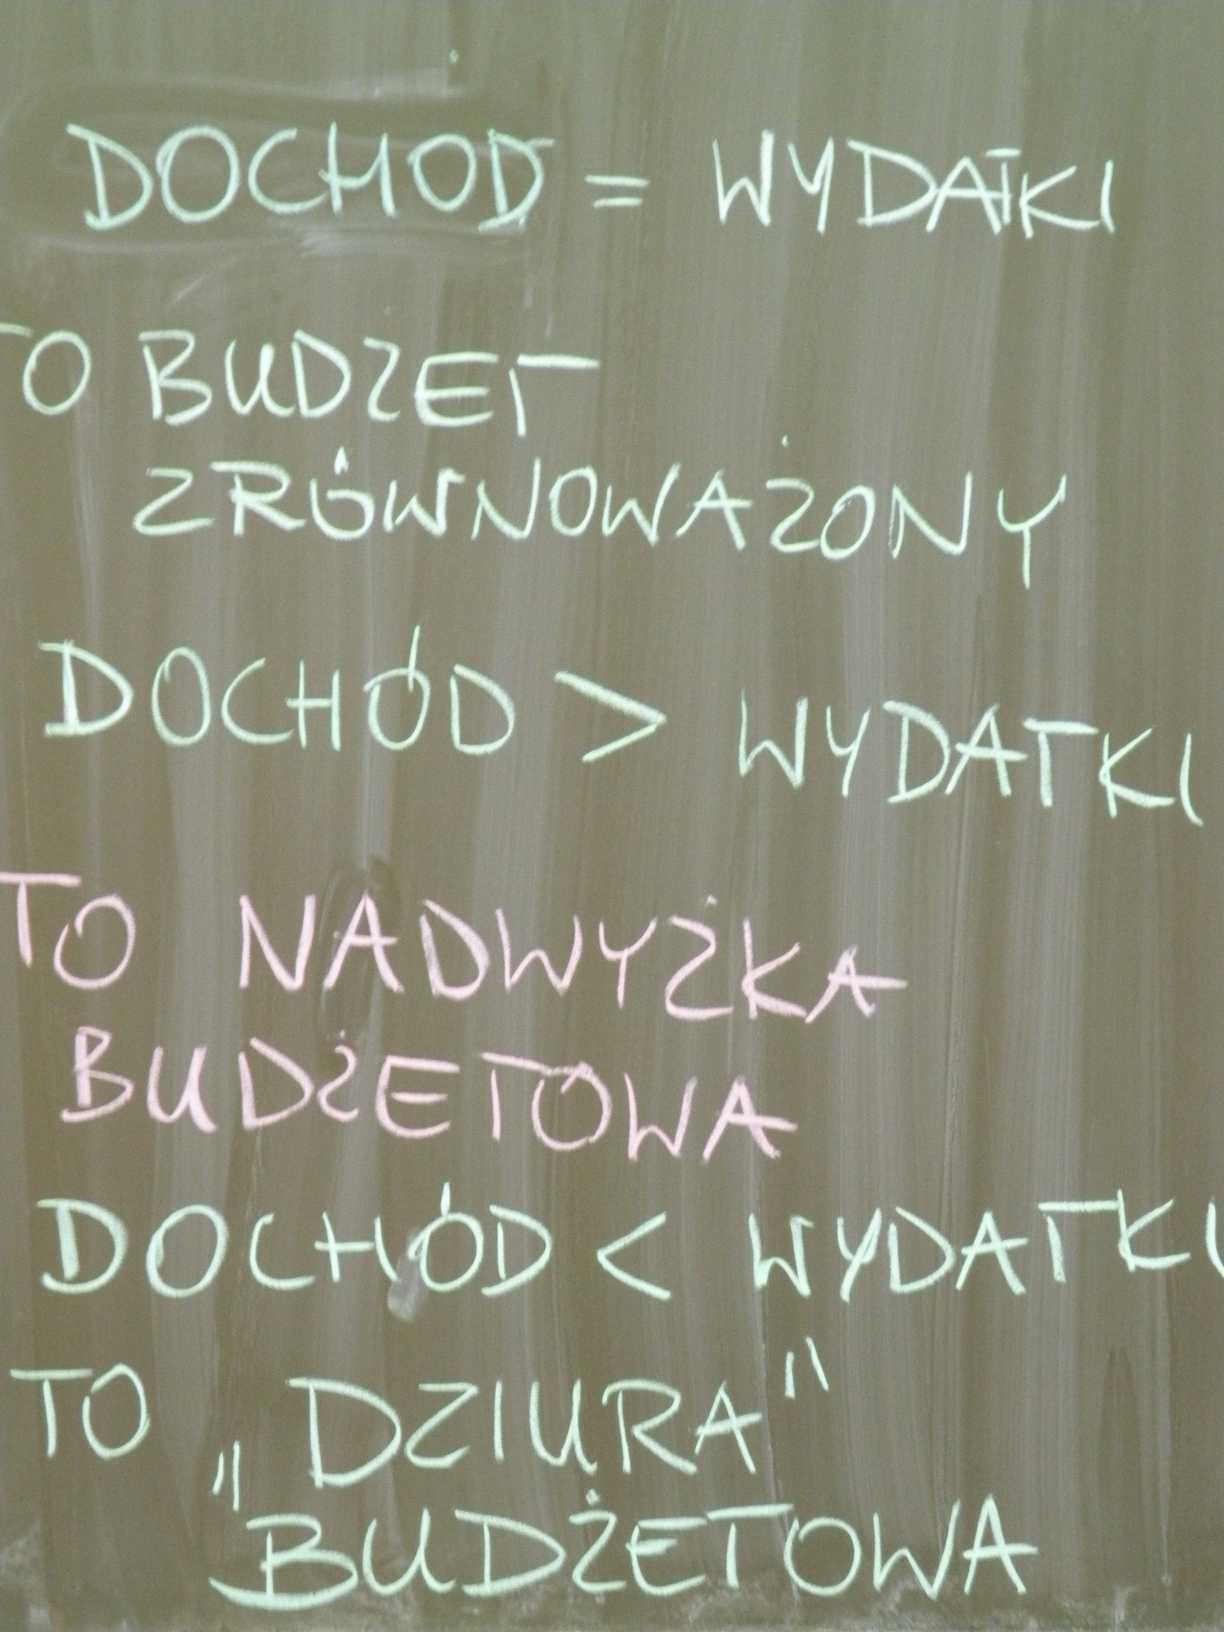 DOCHOD = WYDATKI
TO BUDZET
ZRÓWNOWAŻONY
DOCHÓD > WYDATKI
TO NADWYŻKA
BUDŻETOWA
DOCHÓD < WYDATKI
TO „DZIURA"
BUDŻETOWA